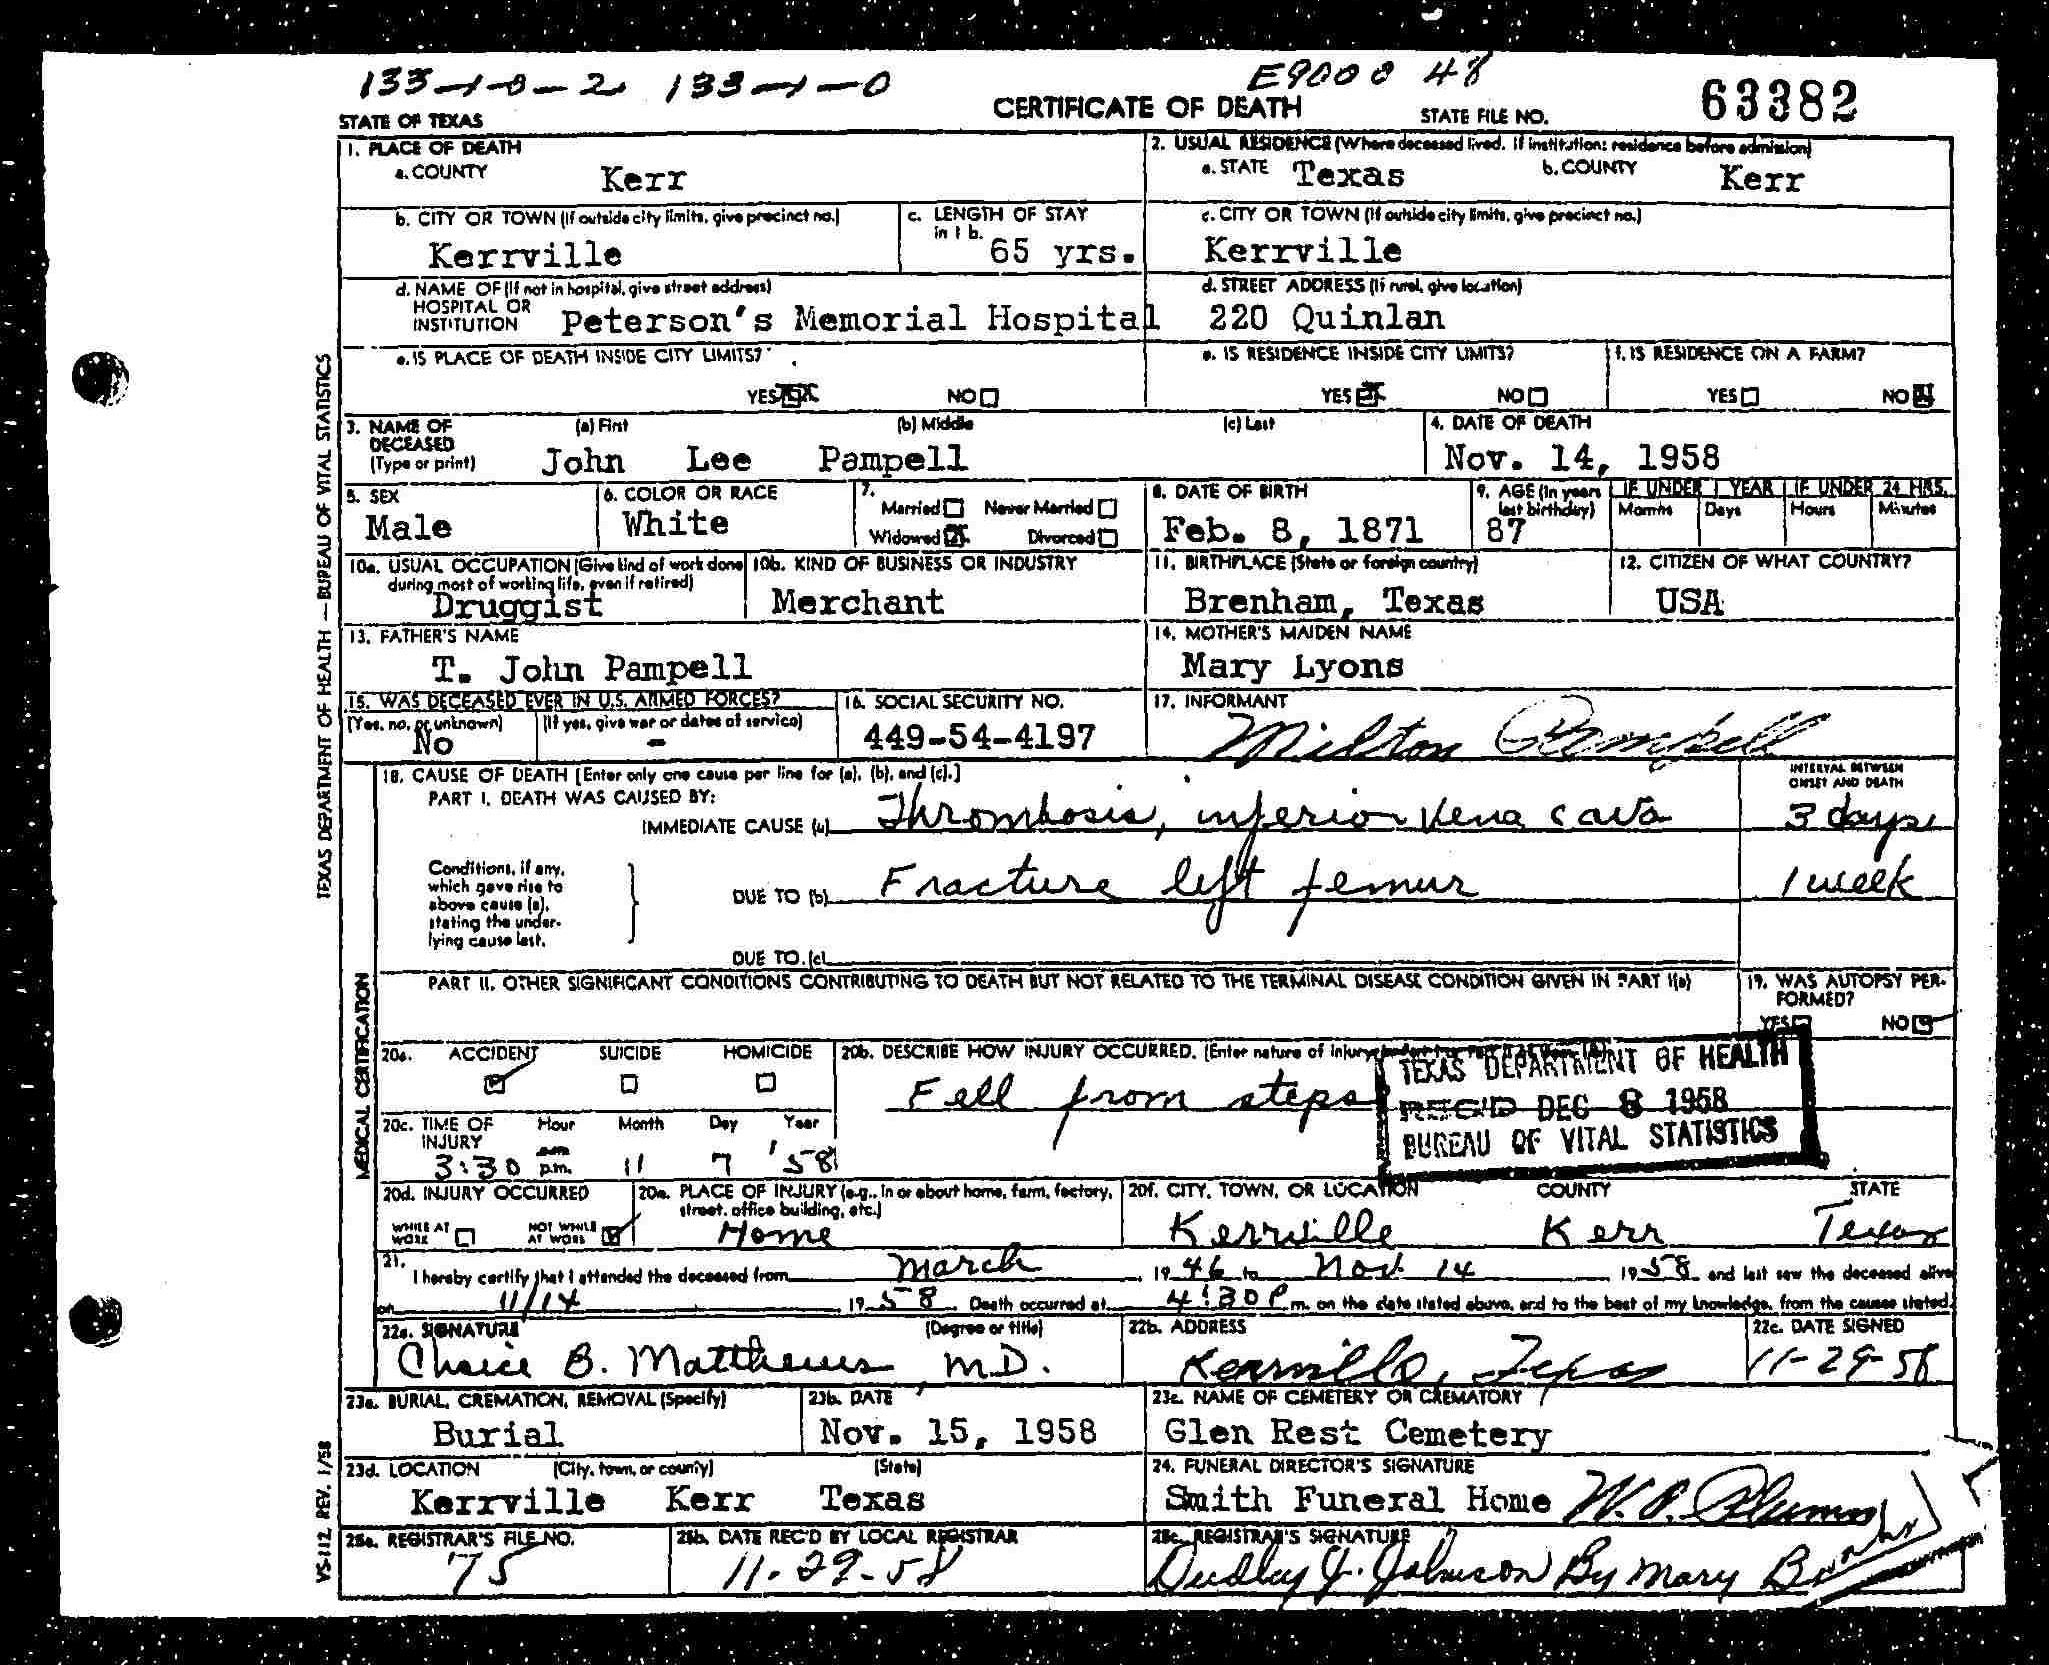 133-1-0-2 133-1-0 E9000 48
STATE OF TEXAS CERTIFICATE OF DEATH STATE FILE NO. 63382
1. PLACE OF DEATH
a. COUNTY Kerr
2. USUAL RESIDENCE (Where deceased lived. If institution: residence before admission)
a. STATE Texas b. COUNTY Kerr
b. CITY OR TOWN (If outside city limits, give precinct no.)
Kerrville
c. LENGTH OF STAY
in 1 b. 65 yrs.
c. CITY OR TOWN (If outside city limits, give precinct no.)
Kerrville
d. NAME OF (If not in hospital, give street address)
HOSPITAL OR
INSTITUTION Peterson's Memorial Hospital
d. STREET ADDRESS (If rural, give location)
220 Quinlan
e. IS PLACE OF DEATH INSIDE CITY LIMITS?
YES NO
e. IS RESIDENCE INSIDE CITY LIMITS?
YES NO
f. IS RESIDENCE ON A FARM?
YES NO
3. NAME OF
DECEASED
(Type or print)
(a) First (b) Middle (c) Last
John Lee Pampell
4. DATE OF DEATH
Nov. 14, 1958
5. SEX
Male
6. COLOR OR RACE
White
7.
Married Never Married
Widowed Divorced
8. DATE OF BIRTH
Feb. 8, 1871
9. AGE (In years
last birthday)
87
IF UNDER 1 YEAR IF UNDER 24 HRS.
Months Days Hours Minutes
10a. USUAL OCCUPATION (Give kind of work done
during most of working life, even if retired)
Druggist
10b. KIND OF BUSINESS OR INDUSTRY
Merchant
11. BIRTHPLACE (State or foreign country)
Brenham, Texas
12. CITIZEN OF WHAT COUNTRY?
USA
13. FATHER'S NAME
T. John Pampell
14. MOTHER'S MAIDEN NAME
Mary Lyons
15. WAS DECEASED EVER IN U.S. ARMED FORCES?
(Yes, no, or unknown) (If yes, give war or dates of service)
No -
16. SOCIAL SECURITY NO.
449-54-4197
17. INFORMANT
Milton Pampell
18. CAUSE OF DEATH [Enter only one cause per line for (a), (b), and (c).]
PART I. DEATH WAS CAUSED BY:
INTERVAL BETWEEN
ONSET AND DEATH
IMMEDIATE CAUSE (a) Thrombosis, inferior vena cava 3 days
Conditions, if any,
which gave rise to
above cause (a),
stating the under-
lying cause last.
DUE TO (b) Fracture left femur 1 week
DUE TO (c)
PART II. OTHER SIGNIFICANT CONDITIONS CONTRIBUTING TO DEATH BUT NOT RELATED TO THE TERMINAL DISEASE CONDITION GIVEN IN PART I(a)
19. WAS AUTOPSY PER-
FORMED?
YES NO
20a. ACCIDENT SUICIDE HOMICIDE
20b. DESCRIBE HOW INJURY OCCURRED. (Enter nature of injury
Fell from steps
TEXAS DEPARTMENT OF HEALTH
REC'D DEC 8 1958
BUREAU OF VITAL STATISTICS
20c. TIME OF
INJURY
Hour Month Day Year
3:30 a.m. p.m. 11 7 '58
20d. INJURY OCCURRED
WHILE AT
WORK
NOT WHILE
AT WORK
20e. PLACE OF INJURY (e.g., in or about home, farm, factory,
street, office building, etc.)
Home
20f. CITY, TOWN, OR LOCATION COUNTY STATE
Kerrville Kerr Texas
21.
I hereby certify that I attended the deceased from March , 19 46 to Nov. 14 19 58 and last saw the deceased alive
on 11/14 19 58. Death occurred at 4:30 P m. on the date stated above, and to the best of my knowledge, from the causes stated.
22a. SIGNATURE (Degree or title)
Choice B. Matthews, M.D.
22b. ADDRESS
Kerrville, Texas
22c. DATE SIGNED
11-29-58
23a. BURIAL, CREMATION, REMOVAL (Specify)
Burial
23b. DATE
Nov. 15, 1958
23c. NAME OF CEMETERY OR CREMATORY
Glen Rest Cemetery
23d. LOCATION (City, town, or county) (State)
Kerrville Kerr Texas
24. FUNERAL DIRECTOR'S SIGNATURE
Smith Funeral Home W.
25a. REGISTRAR'S FILE NO.
75
25b. DATE REC'D BY LOCAL REGISTRAR
11-29-58
25c. REGISTRAR'S SIGNATURE
Dudley J. Johnson By Mary
TEXAS DEPARTMENT OF HEALTH — BUREAU OF VITAL STATISTICS
MEDICAL CERTIFICATION
VS-112 REV. 1/58